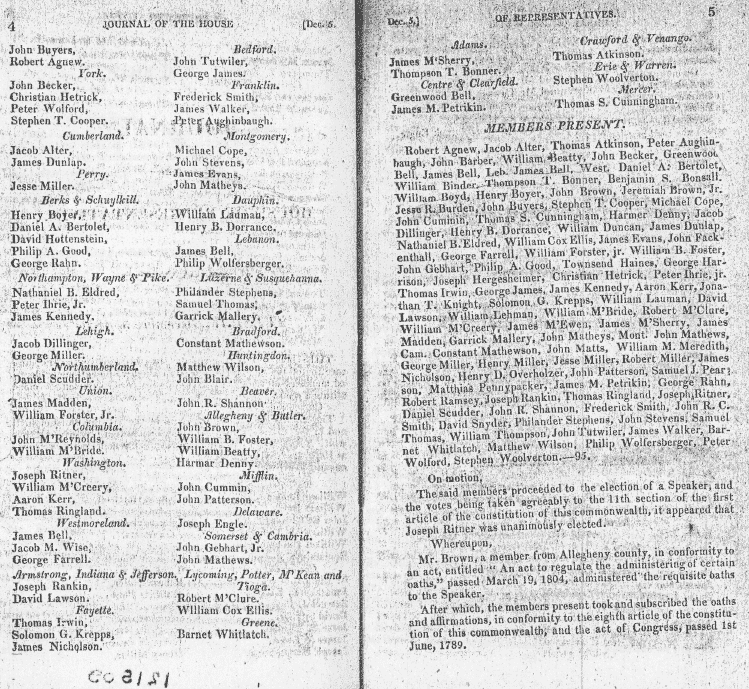 4 JOURNAL OF THE HOUSE [Dec. 5.
John Buyers,
Robert Agnew.
York.
John Becker,
Christian Hetrick,
Peter Wolford,
Stephen T. Cooper.
Cumberland.
Jacob Alter,
James Dunlap.
Perry.
Jesse Miller.
Berks & Schuylkill.
Henry Boyer,
Daniel A. Bertolet,
David Hottenstein,
Philip A. Good,
George Rahn.
Northampton, Wayne & Pike.
Nathaniel B. Eldred,
Peter Ihrie, Jr.
James Kennedy.
Lehigh.
Jacob Dillinger,
George Miller.
Northumberland.
Daniel Scudder.
Union.
James Madden,
William Forster, Jr.
Columbia.
John M'Reynolds,
William M'Bride.
Washington.
Joseph Ritner,
William M'Creery,
Aaron Kerr,
Thomas Ringland.
Westmoreland.
James Bell,
Jacob M. Wise,
George Farrell.
Armstrong, Indiana & Jefferson.
Joseph Rankin,
David Lawson.
Fayette.
Thomas Irwin,
Solomon G. Krepps,
James Nicholson.
Bedford.
John Tutwiler,
George James.
Franklin.
Frederick Smith,
James Walker,
Peter Aughinbaugh.
Montgomery.
Michael Cope,
John Stevens,
James Evans,
John Matheys.
Dauphin.
William Lauman,
Henry B. Dorrance.
Lebanon.
James Bell,
Philip Wolfersberger.
Luzerne & Susquehanna.
Philander Stephens,
Samuel Thomas,
Garrick Mallery,
Bradford.
Constant Mathewson.
Huntingdon.
Matthew Wilson,
John Blair.
Beaver.
John R. Shannon.
Allegheny & Butler.
John Brown,
William B. Foster,
William Beatty,
Harmar Denny.
Mifflin.
John Cummin,
John Patterson.
Delaware.
Joseph Engle.
Somerset & Cambria.
John Gebhart, Jr.
John Mathews.
Lycoming, Potter, M'Kean and
Tioga.
Robert M'Clure.
William Cox Ellis.
Greene.
Barnet Whitlatch.
Dec. 5.] OF REPRESENTATIVES. 5
Adams.
James M'Sherry,
Thompson T. Bonner.
Centre & Clearfield.
Greenwood Bell,
James M. Petrikin.
Crawford & Venango.
Thomas Atkinson.
Erie & Warren.
Stephen Woolverton.
Mercer.
Thomas S. Cunningham.
MEMBERS PRESENT.
Robert Agnew, Jacob Alter, Thomas Atkinson, Peter Aughin-
baugh, John Barber, William Beatty, John Becker, Greenwood
Bell, James Bell, Leb. James Bell, West. Daniel A. Bertolet,
William Binder, Thompson T. Bonner, Benjamin S. Bonsall,
William Boyd, Henry Boyer, John Brown, Jeremiah Brown, Jr.
Jesse R. Burden, John Buyers, Stephen T. Cooper, Michael Cope,
John Cummin, Thomas S. Cunningham, Harmer Denny, Jacob
Dillinger, Henry B. Dorrance, William Duncan, James Dunlap,
Nathaniel B. Eldred, William Cox Ellis, James Evans, John Fack-
enthall, George Farrell, William Forster, jr. William B. Foster,
John Gebhart, Philip A. Good, Townsend Haines, George Har-
rison, Joseph Hergesheimer, Christian Hetrick, Peter Ihrie, jr.
Thomas Irwin, George James, James Kennedy, Aaron Kerr, Jona-
than T. Knight, Solomon G. Krepps, William Lauman, David
Lawson, William Lehman, William M'Bride, Robert M'Clure,
William M'Creery, James M'Ewen, James M'Sherry, James
Madden, Garrick Mallery, John Matheys, Mont. John Mathews,
Cam. Constant Mathewson, John Matts, William M. Meredith,
George Miller, Henry Miller, Jesse Miller, Robert Miller, James
Nicholson, Henry D. Overholzer, John Patterson, Samuel J. Pear-
son, Matthias Pennypacker, James M. Petrikin, George Rahn,
Robert Ramsey, Joseph Rankin, Thomas Ringland, Joseph Ritner,
Daniel Scudder, John R. Shannon, Frederick Smith, John R. C.
Smith, David Snyder, Philander Stephens, John Stevens, Samuel
Thomas, William Thompson, John Tutwiler, James Walker, Bar-
net Whitlatch, Matthew Wilson, Philip Wolfersberger, Peter
Wolford, Stephen Woolverton.—95.
On motion,
The said members proceeded to the election of a Speaker, and
the votes being taken agreeably to the 11th section of the first
article of the constitution of this commonwealth, it appeared that
Joseph Ritner was unanimously elected.
Whereupon,
Mr. Brown, a member from Allegheny county, in conformity to
an act, entitled "An act to regulate the administering of certain
oaths," passed March 19, 1804, administered the requisite oaths
to the Speaker.
After which, the members present took and subscribed the oaths
and affirmations, in conformity to the eighth article of the constitu-
tion of this commonwealth, and the act of Congress, passed 1st
June, 1789.